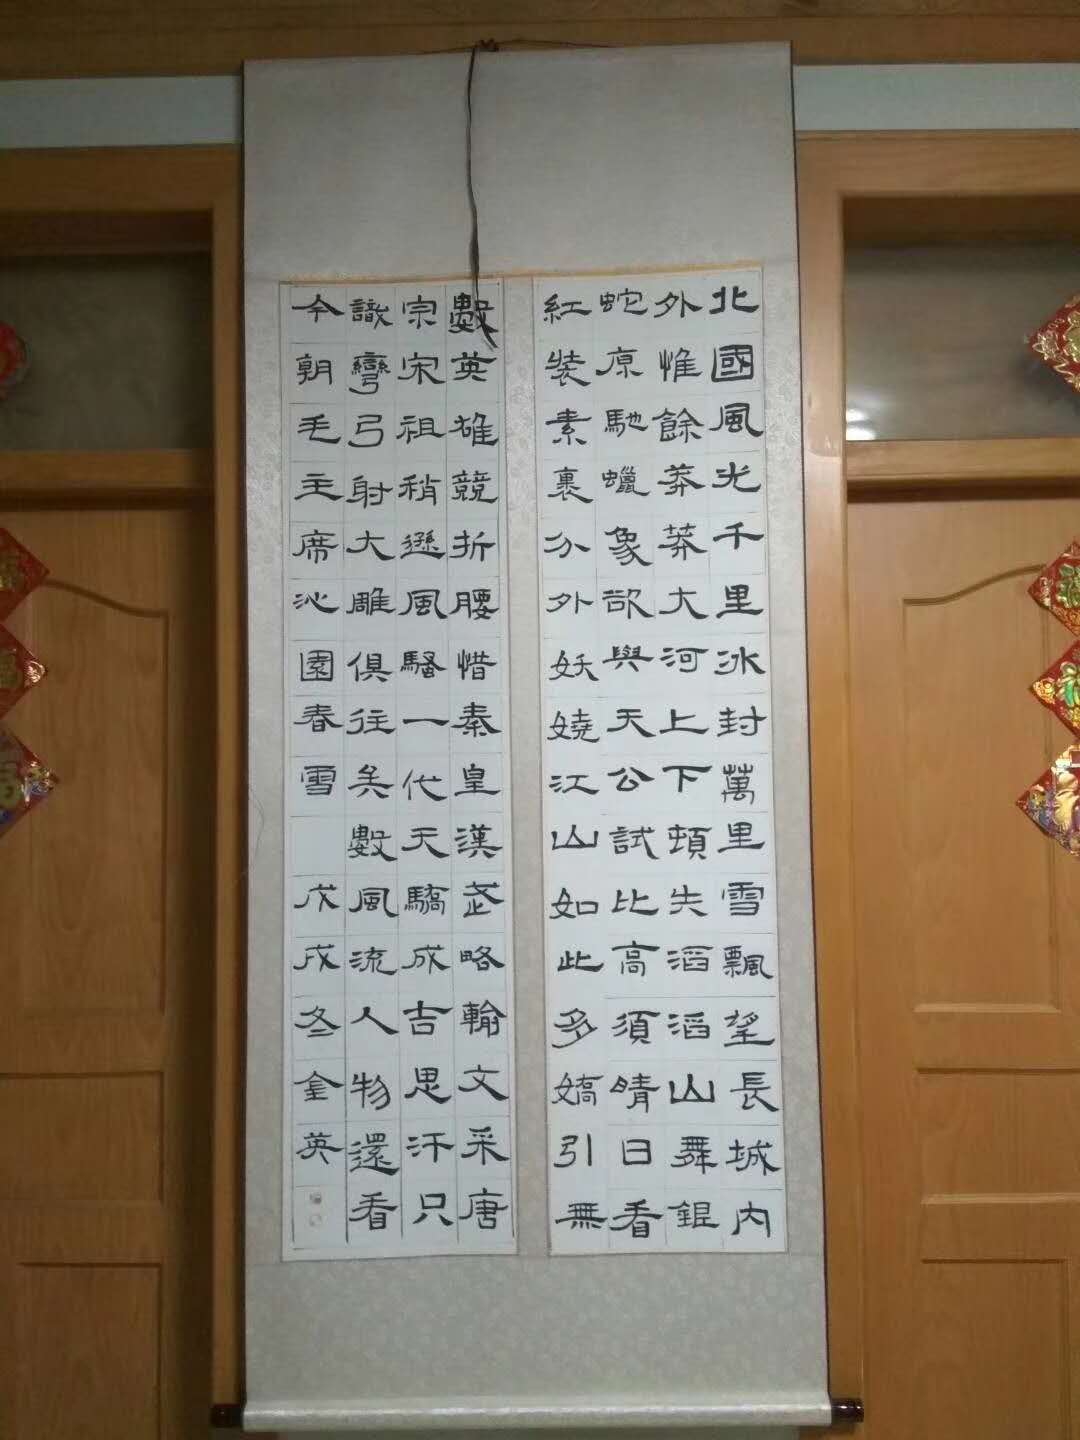 北國風光千里冰封萬里雪飄望長城内
外惟餘莽莽大河上下頓失滔滔山舞銀
蛇原馳蠟象欲與天公試比高須晴日看
紅裝素裹分外妖嬈江山如此多嬌引無
數英雄競折腰惜秦皇漢武略輸文采唐
宗宋祖稍遜風騷一代天驕成吉思汗只
識彎弓射大雕俱往矣數風流人物還看
今朝毛主席沁園春雪 戊戌冬金英